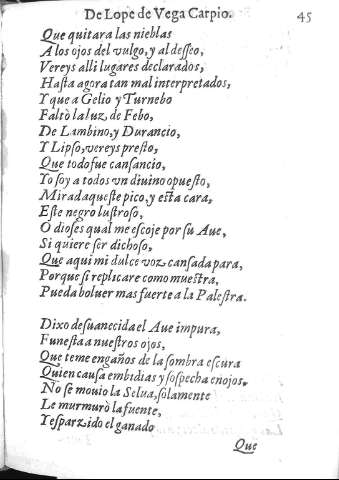 De Lope de Vega Carpio. 45
Que quitara las nieblas
A los ojos del vulgo, y al desseo,
Vereys alli lugares declarados,
Hasta agora tan mal interpretados,
Y que a Gelio y Turnebo
Faltò la luz de Febo,
De Lambino, y Durancio,
Y Lipso, vereys presto,
Que todo fue cansancio,
Yo soy a todos vn diuino opuesto,
Mirad aqueste pico, y esta cara,
Este negro lustroso,
O dioses qual me escoje por su Aue,
Si quiere ser dichoso,
Que aqui mi dulce voz cansada para,
Porque si replicare como muestra,
Pueda boluer mas fuerte a la Palestra.
Dixo desuanecida el Aue impura,
Funesta a nuestros ojos,
Que teme engaños de la sombra escura
Quien causa embidias y sospecha enojos.
No se mouio la Selua, solamente
Le murmurò la fuente,
Y esparzido el ganado
Que